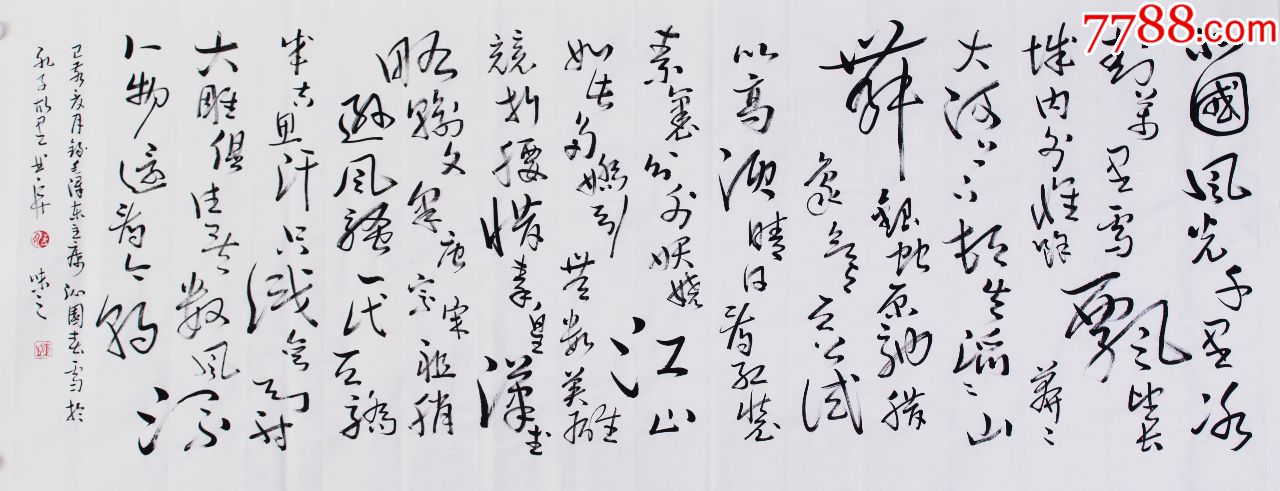 7788.com
北國風光千里冰
封萬里雪飄望長
城内外惟餘莽〻
大河上下頓失滔〻山
舞銀蛇原馳蠟
象欲與天公試
比高須晴日看紅裝
素裹分外妖嬈江山
如此多嬌引無數英雄
競折腰惜秦皇漢武
略輸文采唐宗宋祖稍
遜風騷一代天驕
成吉思汗只識彎弓射
大雕俱往矣數風流
人物還看今朝
己亥夏月錄毛澤東主席沁園春雪於
孔子故里